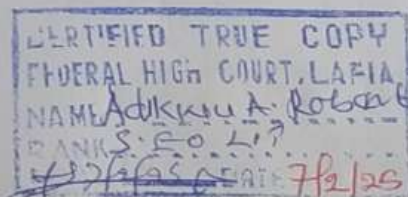 CERTIFIED TRUE COPY
FEDERAL HIGH COURT, LAFIA
NAME A. Robert
RANK S.EO LIT
DATE 7/2/25